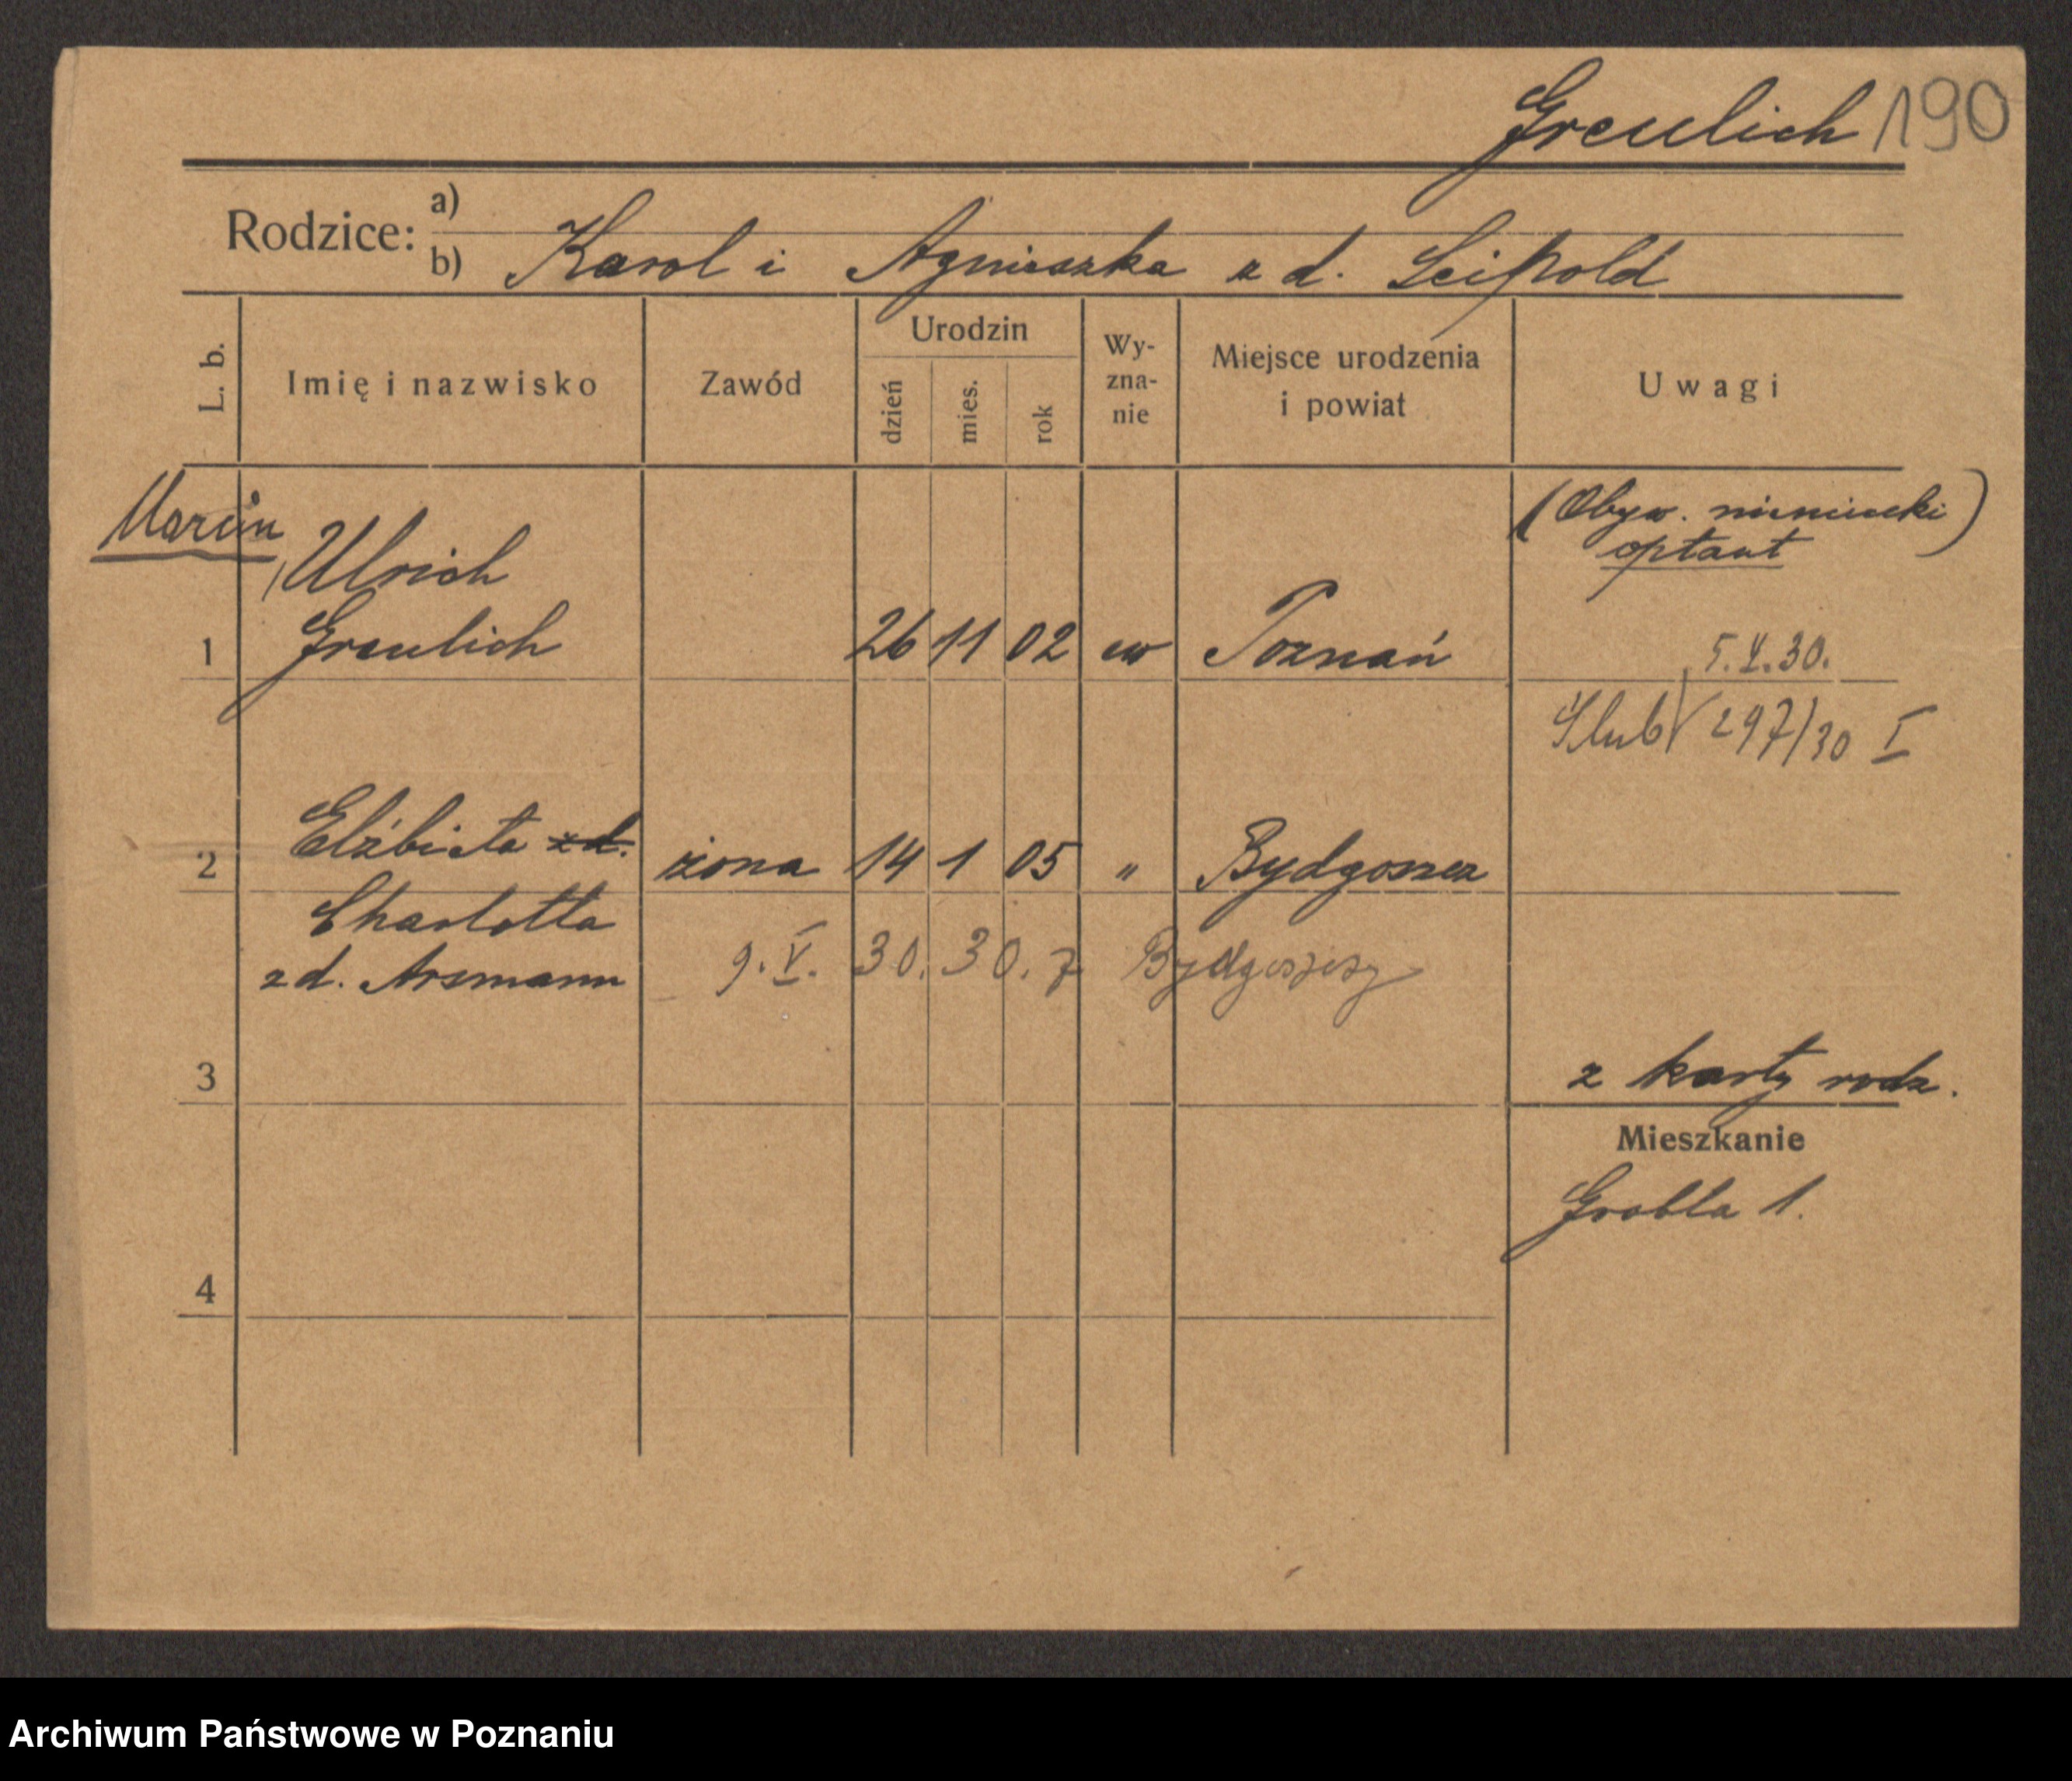 Greulich 190
Rodzice:
a)
b) Karol i Agnieszka z d. Leipold
L. b.
Imię i nazwisko
Zawód
Urodzin
dzień
mies.
rok
Wy-
zna-
nie
Miejsce urodzenia
i powiat
Uwagi
Marcin
Ulrich
(Obyw. niemiecki)
optant
1 Greulich 26 11 02 ew Poznań
5.V.30.
Slub 297/30 I
2 Elżbieta z d. żona 14 1 05 " Bydgoszcz
Charlotta
z d.
9. V. 30. 30. z Bydgoszczy
3
z karty rodz.
Mieszkanie
Grobla 1.
4
Archiwum Państwowe w Poznaniu